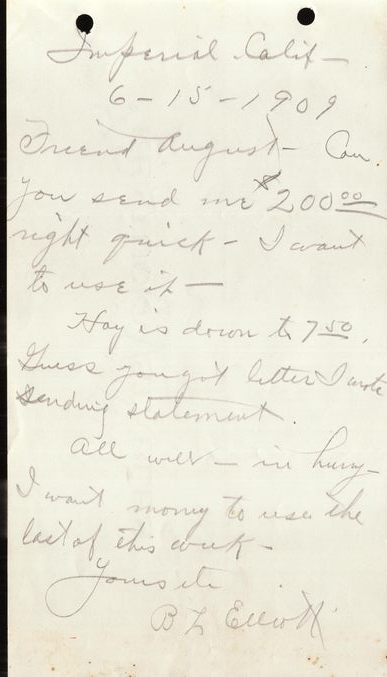 Imperial Calif -
6-15-1909
Friend August - Can
you send me $200.00
right quick - I want
to use it -
Hay is down to 7.50.
Guess you got letter I wrote
sending statement.
All well - in hurry -
I want money to use the
last of this week -
Yours etc
B L Elliott